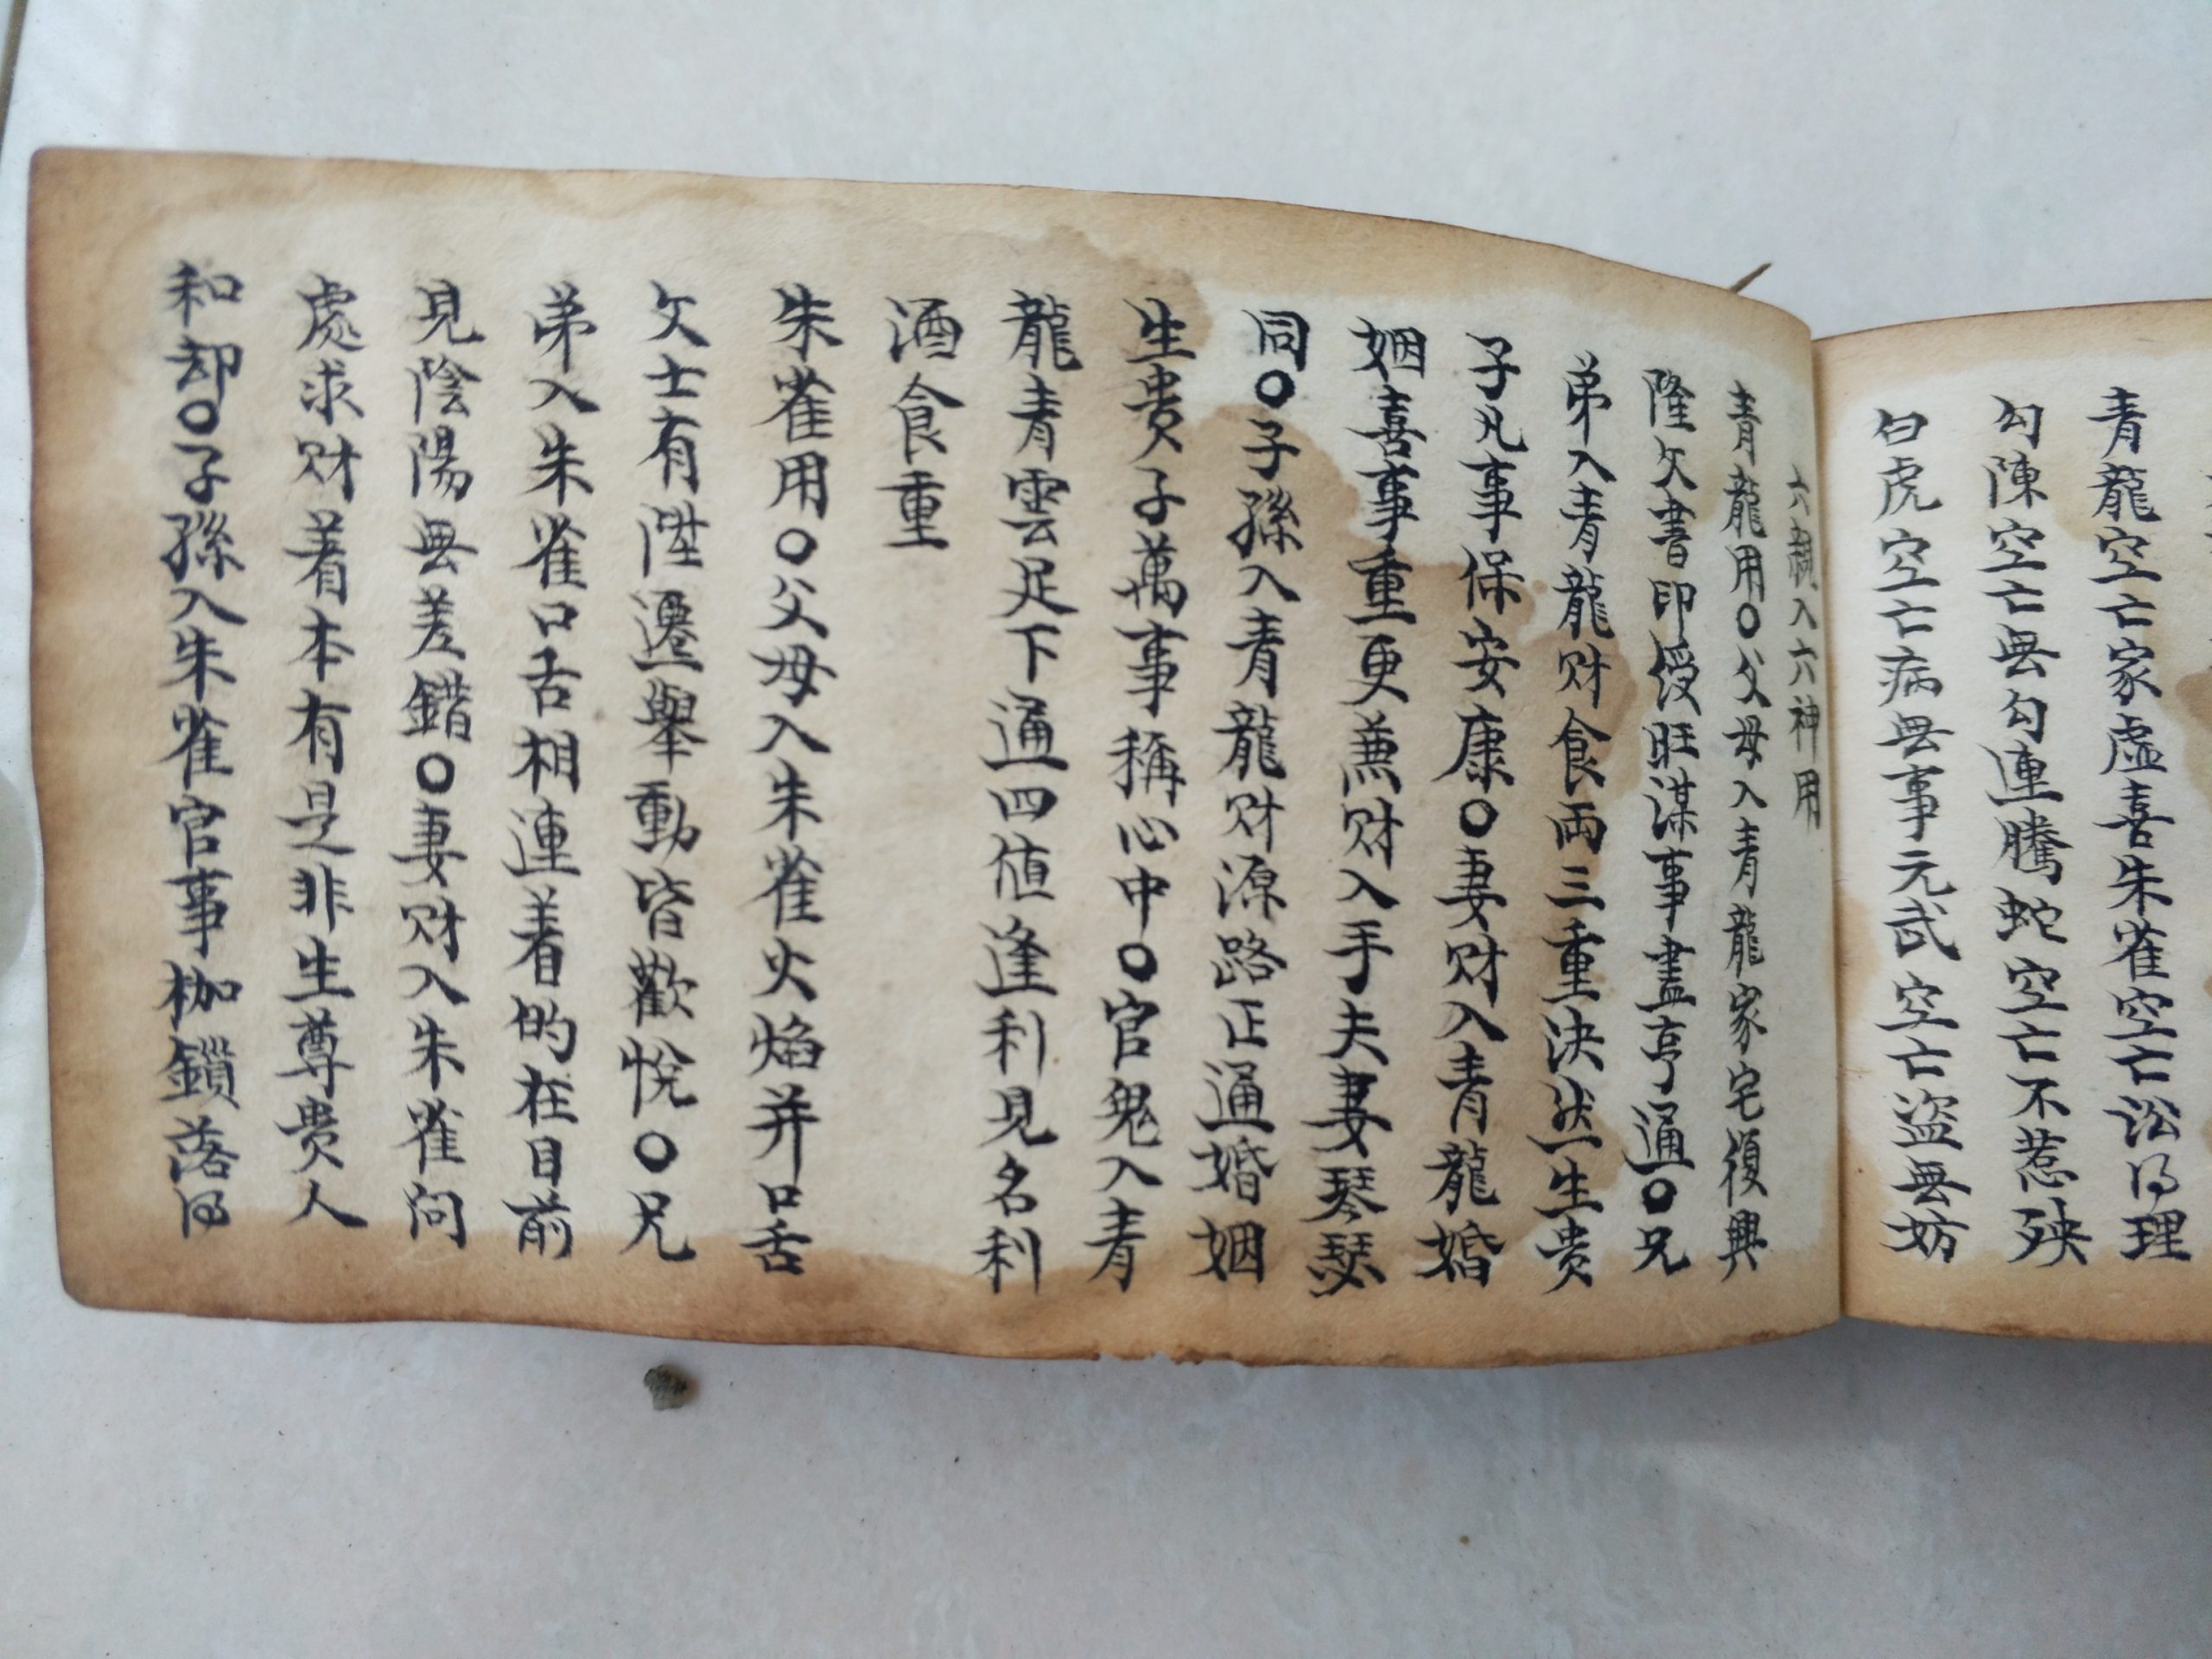 青龍空亡家虛喜朱雀空亡訟得理
勾陳空亡無勾連騰蛇空亡不惹殃
白虎空亡病無事元武空亡盜無妨
六親入六神用
青龍用〇父母入青龍家宅復興
隆文書印綬旺謀事盡亨通〇兄
弟入青龍財食兩三重決然生贵
子凡事保安康〇妻财入青龍婚
姻喜事重更兼财入手夫妻琴瑟
同〇子孫入青龍财源路正通婚姻
生贵子萬事稱心中〇官鬼入青
龍青雲足下通四值逢利見名利
酒食重
朱雀用〇父母入朱雀火焰并口舌
文士有陞遷舉動皆歡悅〇兄
弟入朱雀口舌相連着的在目前
見陰陽無差錯〇妻财入朱雀问
處求财着本有是非生尊贵人
和却〇子孫入朱雀官事枷鎖落因